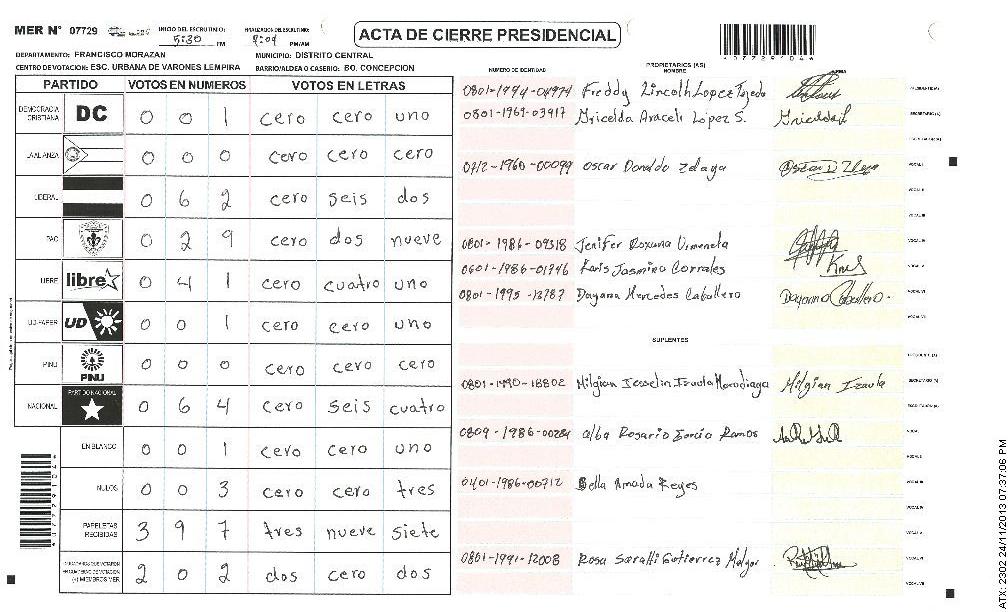 MER N° 07729
INICIO DEL ESCRUTINIO: 5:30 PM
FINALIZACION DEL ESCRUTINIO: 7:04 PM/AM
ACTA DE CIERRE PRESIDENCIAL
DEPARTAMENTO: FRANCISCO MORAZAN MUNICIPIO: DISTRITO CENTRAL
CENTRO DE VOTACION: ESC. URBANA DE VARONES LEMPIRA BARRIO/ALDEA O CASERIO: BO. CONCEPCION
PARTIDO VOTOS EN NUMEROS VOTOS EN LETRAS
DEMOCRACIA CRISTIANA DC 0 0 1 cero cero uno
LA ALIANZA 0 0 0 cero cero cero
LIBERAL 0 6 2 cero seis dos
PAC 0 2 9 cero dos nueve
LIBRE libre 0 4 1 cero cuatro uno
UD-FAPER UD 0 0 1 cero cero uno
PINU PINU 0 0 0 cero cero cero
NACIONAL PARTIDO NACIONAL 0 6 4 cero seis cuatro
EN BLANCO 0 0 1 cero cero uno
NULOS 0 0 3 cero cero tres
PAPELETAS RECIBIDAS 3 9 7 tres nueve siete
(+) MIEMBROS MER 2 0 2 dos cero dos
PROPIETARIOS (AS)
NUMERO DE IDENTIDAD NOMBRE FIRMA
0801-1994-04974 Freddy Lincolh Lopez Tejeda PRESIDENTE (A)
0801-1969-03917 Gricelda Araceli López S. Griceldal SECRETARIO (A)
0712-1960-00099 Oscar Donaldo Zelaya VOCAL I
0801-1986-09318 Jenifer Roxana Urmeneta
0601-1986-01946 Karis Jasmina Corrales
0801-1995-13787 Dayana Mercedes Caballero Dayanna Caballero.
SUPLENTES
0801-1990-18802 Milgian Jesselin Izaula Mondraga Milgian Izaula SECRETARIO (A)
0809-1986-00284 alba Rosario Garcia Ramos
0401-1986-00712 Bella Amada Reyes
0801-1991-12008 Rosa Saralli Gutierrez Melgar
ATX: 2302 24/11/2013 07:37:06 PM